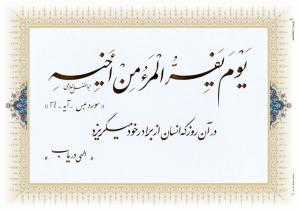 يَوْمَ يَفِرُّ الْمَرْءُ مِنْ أَخِيهِ
«سوره عبس - آیه - ۳۴»
در آن روز که انسان از برادر خود میگریزد
« الهی دریاب »